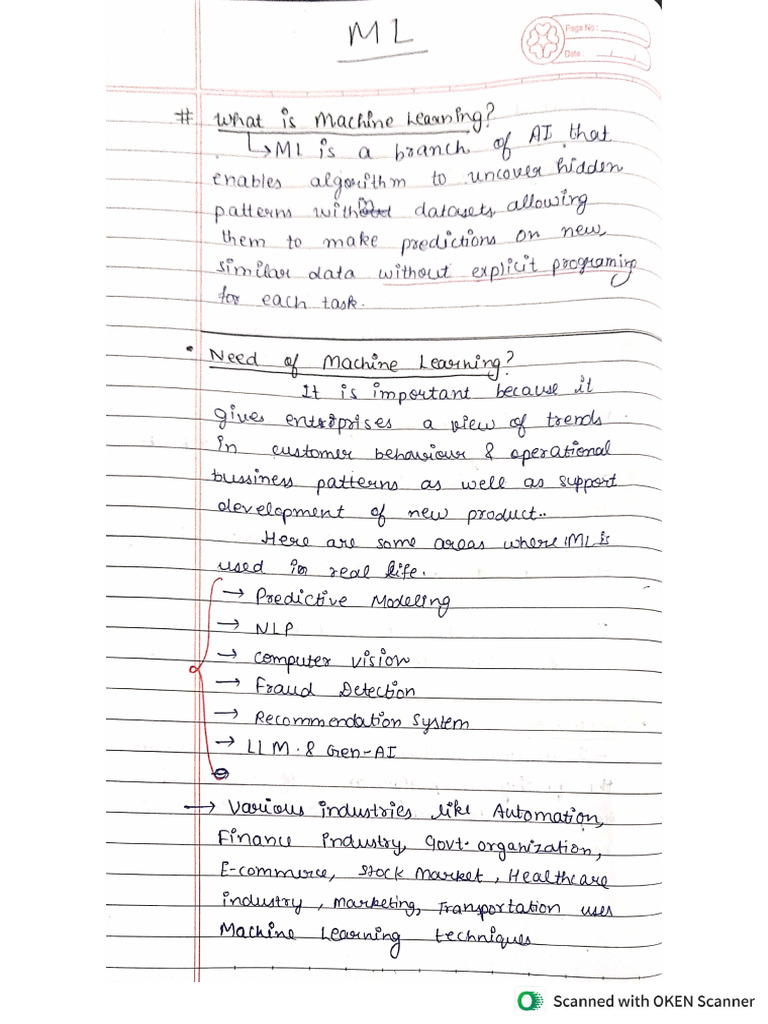 ML
Page No:
Date: / /
# What is Machine Learning?
↳ ML is a branch of AI that
enables algorithm to uncover hidden
patterns within datasets, allowing
them to make predictions on new,
similar data without explicit programing
for each task.
• Need of Machine Learning?
It is important because it
gives enterprises a view of trends
in customer behaviour & operational
bussiness patterns as well as support
development of new product..
Here are some areas where ML is
used in real life.
→ Predictive Modeling
→ NLP
→ Computer vision
→ Fraud Detection
→ Recommendation System
→ LLM & Gen-AI
→ Various industries like Automation,
Finance industry, Govt. organization,
E-commerce, Stock Market, Healthcare
industry, marketing, Transportation uses
Machine Learning techniques
Scanned with OKEN Scanner